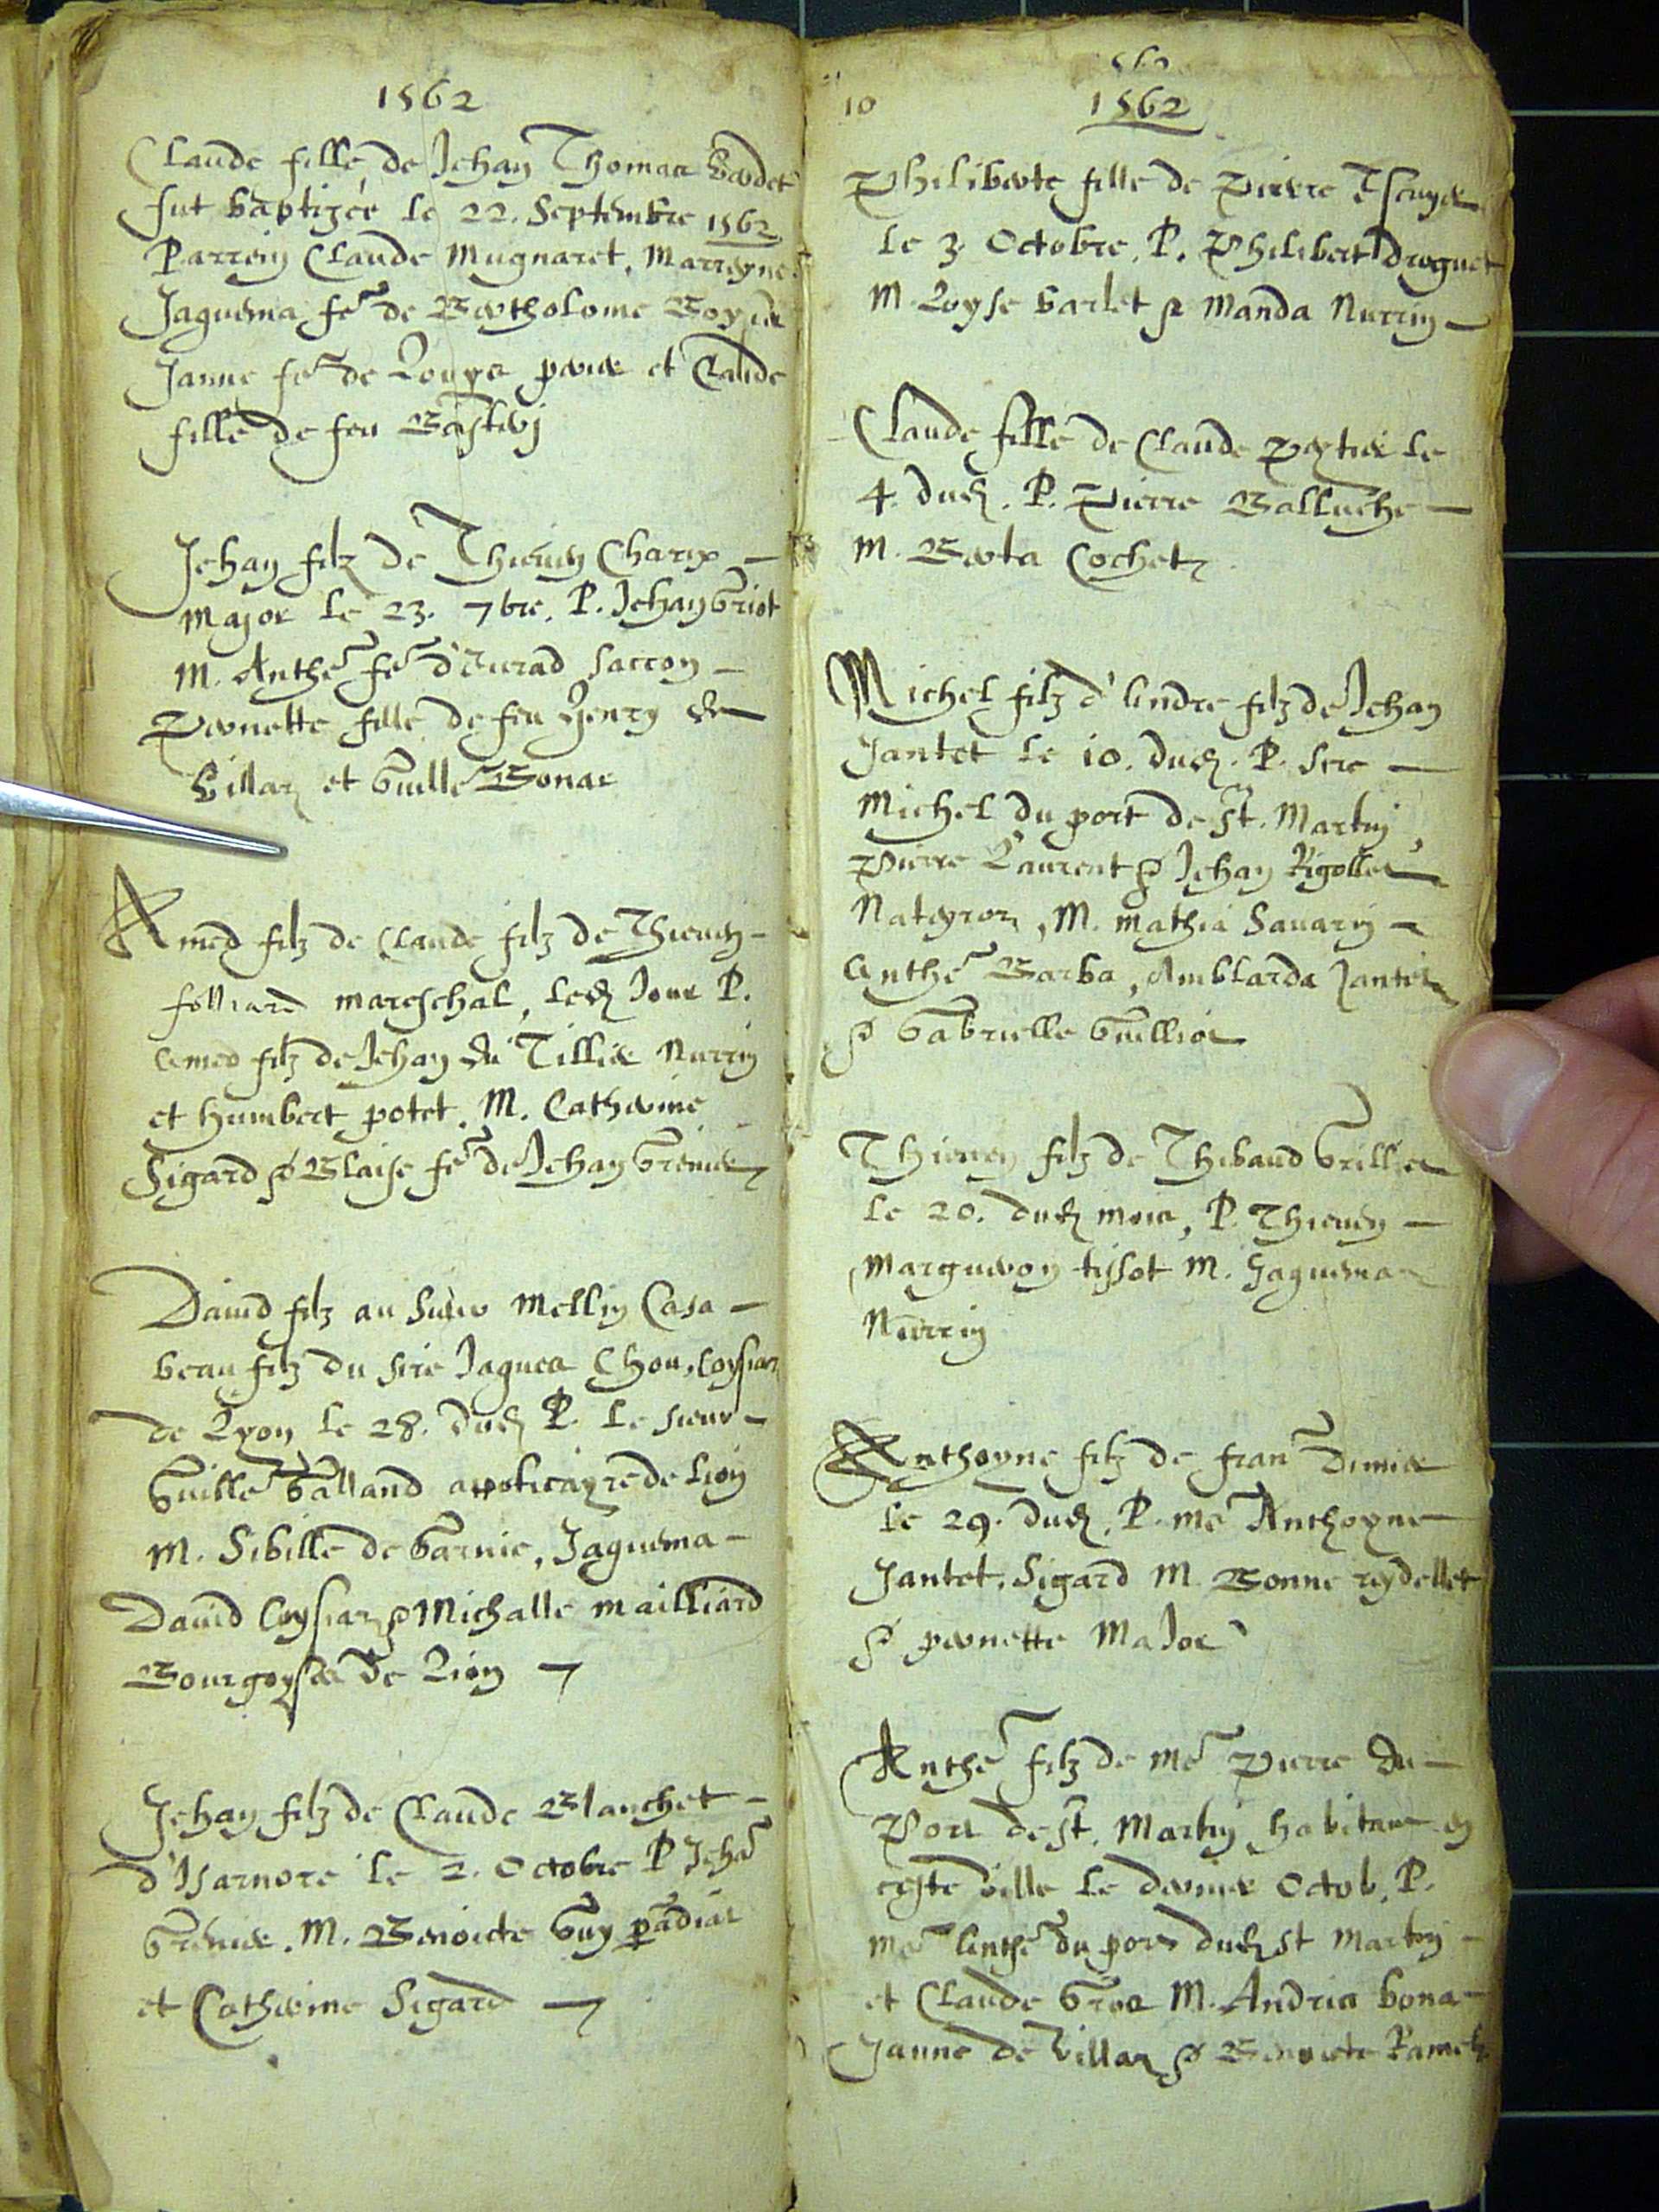 1562
Claude fille de Jehan Thomas
fut baptizée le 22. Septembre 1562
Parrein Claude Mugnaret, Marreyne
Jaquema fe de Bertholome
Janne fe de Louys et Claude
fille de feu
Jehan filz de Thieven Charix
Major le 23. 7bre. P. Jehan Griot
M. Anthe fe d'Eurad Saccon
Pernette fille de feu Henry de
Villars et Guille Bonas
Amed filz de Claude filz de Thieven
folliard mareschal, led Jour P.
Amed filz de Jehan du Tillier Nurrin
et Humbert potet. M. Catherine
Sigard & Blaise fe de Jehan Grenier
David filz au Mellin Casa
beau filz du sire Jaques Chou,
de Lyon le 28. dud P. Le sieur
Guille Galland apoticayre de Lion
M. Sibille de Garnie, Jaquema
David & Michalle mailliard
Bourgoyses de Lion
Jehan filz de Claude Blanchet
d'Isarnore le 2. Octobre P Jehan
Grenier. M. Benoicte Guy
et Catherine Sigard
10
1562
Philiberte fille de Pierre Escuyer
le 3 Octobre. P. Philibert droguet
M. Loyse barlet & Manda Nurrin
Claude fille de Claude le
4. dud. P. PierreBalluche
M. Berta Cochet
Michel filz d'Andre filz de Jehan
Jantet le 10. dud. P. sire
Michel du port de st. Martin,
Pierre Laurent & Jehan Rigollet
M. mathia Savarin
Anthe Barba, Amblarda
& Gabrielle
Thieven filz de Thibaud Grillet
le 20. dud mois, P. Thieven
Margueron tissot M. Jaquema
Nurrin
Anthoyne filz de fran
le 29. dud. P. me Anthoyne
Jantet. Sigard M. Bonne reydellet
& pernette Major
Anthe filz de me Pierre du
Port de st. Martin habitant en
ceste ville le dernier Octob. P.
me Anthe du port dud st Martin
et Claude Gros M. Andria bona
Janne de Villars & Benoicte